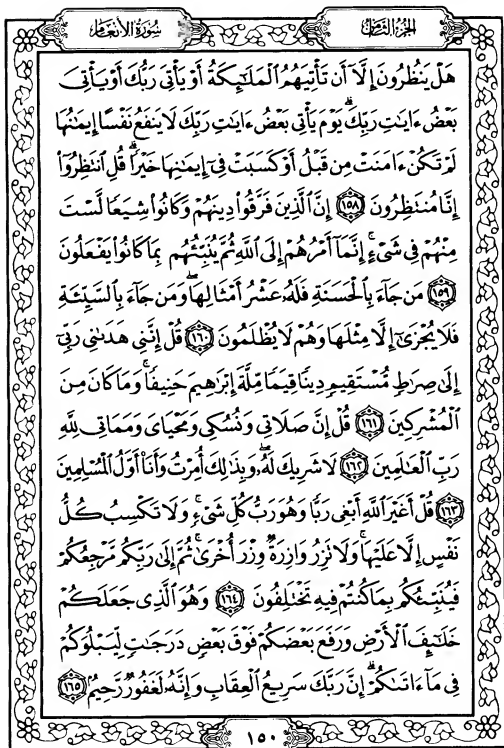 الجزء الثامن
سورة الأنعام
هَلْ يَنظُرُونَ إِلَّا أَن تَأْتِيَهُمُ الْمَلَٰٓئِكَةُ أَوْ يَأْتِىَ رَبُّكَ أَوْ يَأْتِىَ
بَعْضُ ءَايَٰتِ رَبِّكَ ۗ يَوْمَ يَأْتِى بَعْضُ ءَايَٰتِ رَبِّكَ لَا يَنفَعُ نَفْسًا إِيمَٰنُهَا
لَمْ تَكُنْ ءَامَنَتْ مِن قَبْلُ أَوْ كَسَبَتْ فِىٓ إِيمَٰنِهَا خَيْرًا ۗ قُلِ ٱنتَظِرُوٓا۟
إِنَّا مُنتَظِرُونَ ١٥٨ إِنَّ ٱلَّذِينَ فَرَّقُوا۟ دِينَهُمْ وَكَانُوا۟ شِيَعًا لَّسْتَ
مِنْهُمْ فِى شَىْءٍ ۚ إِنَّمَآ أَمْرُهُمْ إِلَى ٱللَّهِ ثُمَّ يُنَبِّئُهُم بِمَا كَانُوا۟ يَفْعَلُونَ
١٥٩ مَن جَآءَ بِٱلْحَسَنَةِ فَلَهُۥ عَشْرُ أَمْثَالِهَا ۖ وَمَن جَآءَ بِٱلسَّيِّئَةِ
فَلَا يُجْزَىٰٓ إِلَّا مِثْلَهَا وَهُمْ لَا يُظْلَمُونَ ١٦٠ قُلْ إِنَّنِى هَدَىٰنِى رَبِّىٓ
إِلَىٰ صِرَٰطٍ مُّسْتَقِيمٍ دِينًا قِيَمًا مِّلَّةَ إِبْرَٰهِيمَ حَنِيفًا ۚ وَمَا كَانَ مِنَ
ٱلْمُشْرِكِينَ ١٦١ قُلْ إِنَّ صَلَاتِى وَنُسُكِى وَمَحْيَاىَ وَمَمَاتِى لِلَّهِ
رَبِّ ٱلْعَٰلَمِينَ ١٦٢ لَا شَرِيكَ لَهُۥ ۖ وَبِذَٰلِكَ أُمِرْتُ وَأَنَا۠ أَوَّلُ ٱلْمُسْلِمِينَ
١٦٣ قُلْ أَغَيْرَ ٱللَّهِ أَبْغِى رَبًّا وَهُوَ رَبُّ كُلِّ شَىْءٍ ۚ وَلَا تَكْسِبُ كُلُّ
نَفْسٍ إِلَّا عَلَيْهَا ۚ وَلَا تَزِرُ وَازِرَةٌ وِزْرَ أُخْرَىٰ ۚ ثُمَّ إِلَىٰ رَبِّكُم مَّرْجِعُكُمْ
فَيُنَبِّئُكُم بِمَا كُنتُمْ فِيهِ تَخْتَلِفُونَ ١٦٤ وَهُوَ ٱلَّذِى جَعَلَكُمْ
خَلَٰٓئِفَ ٱلْأَرْضِ وَرَفَعَ بَعْضَكُمْ فَوْقَ بَعْضٍ دَرَجَٰتٍ لِّيَبْلُوَكُمْ
فِى مَآ ءَاتَىٰكُمْ ۗ إِنَّ رَبَّكَ سَرِيعُ ٱلْعِقَابِ وَإِنَّهُۥ لَغَفُورٌ رَّحِيمٌۢ ١٦٥
١٥٠